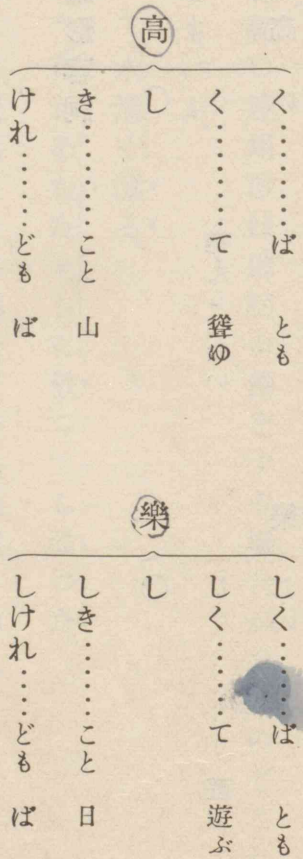 高
く………ば とも
く………て 聳ゆ
し
き………こと 山
けれ………ども ば
樂
しく………ば とも
しく………て 遊ぶ
し
しき………こと 日
しけれ……ども ば